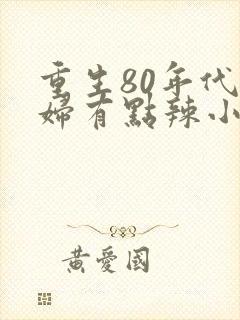 重生80年代
婦有點辣小
黃愛國